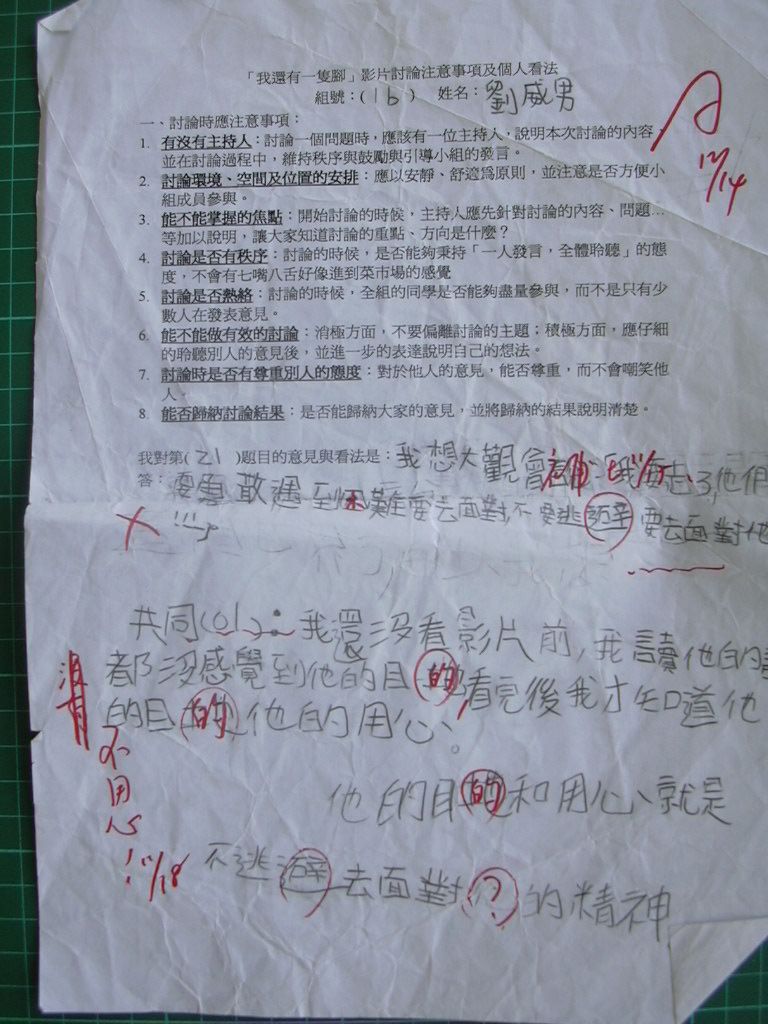 「我還有一隻腳」影片討論注意事項及個人看法
組號：(16) 姓名：劉威男
A
12/14
一、討論時應注意事項：
1. 有沒有主持人：討論一個問題時，應該有一位主持人，說明本次討論的內容，
並在討論過程中，維持秩序與鼓勵與引導小組的發言。
2. 討論環境、空間及位置的安排：應以安靜、舒適為原則，並注意是否方便小
組成員參與。
3. 能不能掌握的焦點：開始討論的時候，主持人應先針對討論的內容、問題…
等加以說明，讓大家知道討論的重點、方向是什麼？
4. 討論是否有秩序：討論的時候，是否能夠秉持「一人發言，全體聆聽」的態
度，不會有七嘴八舌好像進到菜市場的感覺
5. 討論是否熱絡：討論的時候，全組的同學是否能夠盡量參與，而不是只有少
數人在發表意見。
6. 能不能做有效的討論：消極方面，不要偏離討論的主題；積極方面，應仔細
的聆聽別人的意見後，並進一步的表達說明自己的想法。
7. 討論時是否有尊重別人的態度：對於他人的意見，能否尊重，而不會嘲笑他
人。
8. 能否歸納討論結果：是否能歸納大家的意見，並將歸納的結果說明清楚。
我對第(21)題目的意見與看法是：我想大觀會
答：要勇敢遇到困難要去面對，不要逃避要去面對他
共同(01)：我還沒看影片前，我讀他的
都沒感覺到他的目的，看完後我才知道他
的目的他的用心。
沒有不用心！11/18
他的目的和用心、就是
不逃避去面對？的精神